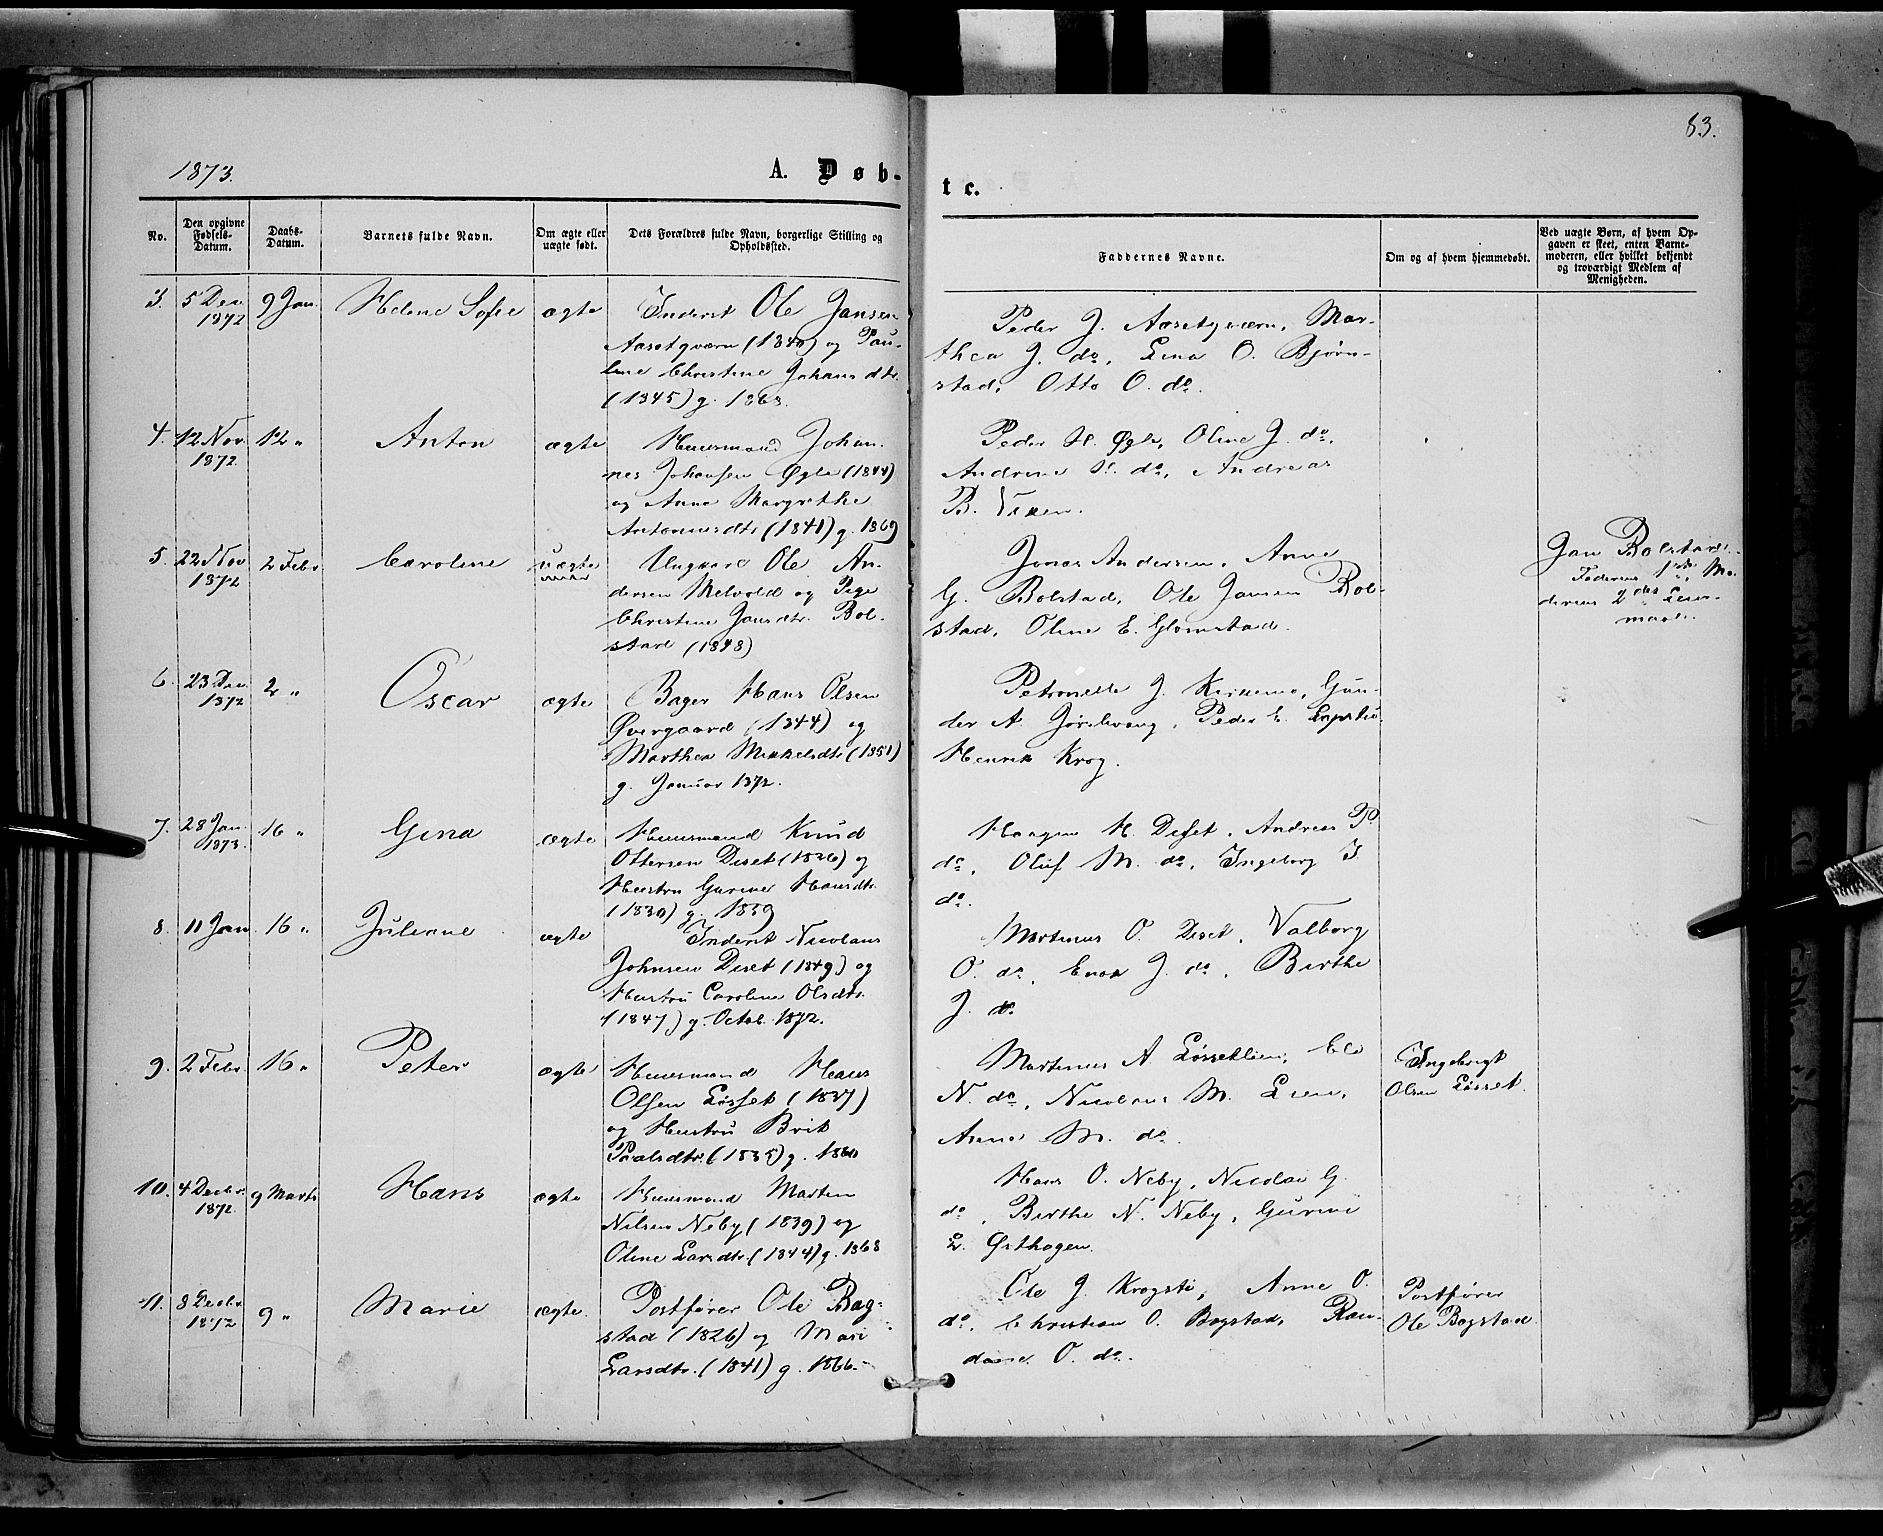 83.
1873.
A. Døb-
te.
No.
Den opgivne Fødsels-Datum.
Daabs-Datum.
Barnets fulde Navn.
Om ægte eller uægte født.
Dets Forældres fulde Navn, borgerlige Stilling og Opholdssted.
Faddernes Navne.
Om og af hvem hjemmedøbt.
Ved uægte Børn, af hvem Opgaven er skeet, enten Barnemoderen, eller hvilket bekjendt og troværdigt Medlem af Menigheden.
3. 5 Dec 1872 9 Jan. Helene Sofie ægte
Inderst Ole Jansen
Aasetqværn (1840) og Pau-
line Christine Johansdtr.
(1845) g. 1868.
Peder J. Aasetqværn, Mar-
thea J. do, Lina O. Bjørn-
stad, Otto O. do.
4. 12 Nov. 1872 12 " Anton ægte
Huusmand Johan-
nes Johansen Øgle (1844)
og Anne Margrethe
Antonnesdtr (1841) g. 1869
Peder H. Øgle, Oline J. do,
Andrine H. do, Andreas
B.
5. 22 Nov 1872 2 Febr Caroline uægte
Ungkarl Ole An-
dersen Melvold og Pige
Christine Jansdtr. Bol-
stad (1848)
Jonas Andersen, Anne
G. Bolstad, Ole Jansen Bol-
stad, Oline E. Glomstad.
Jan Bolstad.
Faderens 1ste, Mo-
derens 2det Leier-
maal.
6. 23 Dec. 1872 2 " Oscar ægte
Bager Hans Olsen
Øvergaard (1844) og
Marthea Mikkelsdtr (1851)
g. Januar 1872.
Petronelle J. Gun-
der A. Peder E.
Henrik Krog.
7. 28 Jan. 1873. 16 " Gina ægte
Huusmand Knud
Ottersen Diset (1826) og
Hustru Gurine Hansdtr.
(1830) g. 1859
Haagen H. Diset, Andreas P
do, Oluf M. do, Ingeborg I.
do.
8. 11 Jan 16 " Juliane ægte
Inderst Nicolaus
Johnsen Diset (1849) og
Hustru Caroline Olsdtr.
(1847) g. Octob. 1872.
Martinus O. Diset, Valborg
O. do, Enok J. do, Birthe
J. do
9. 2 Febr 16 " Peter ægte
Huusmand Hans
Olsen Løsset (1837)
og Hustru Brit
Paalsdtr. (1835) g. 1860
Martinus A. Løssetlien,
N. do, Nicolaus M. Lien,
Anne M. do.
Ingebrigt
Olsen Løsset.
10. 4 Decbr. 1872. 9 Marts Hans ægte
Huusmand Martin
Nilsen Neby (1839) og
Oline Larsdtr. (1844) g. 1868
Hans O. Neby, Nicolai G.
do, Birthe N. Neby, Gurine
L. Østhagen.
11. 8 Decbr. 1872 9 " Marie ægte.
Postfører Ole Bag-
stad (1826) og Mari
Larsdtr. (1841) g. 1866.
Ole J. Krogsti, Anne O.
do, Christian O. Bagstad, Ran-
dine O. do.
Postfører
Ole Bagstad